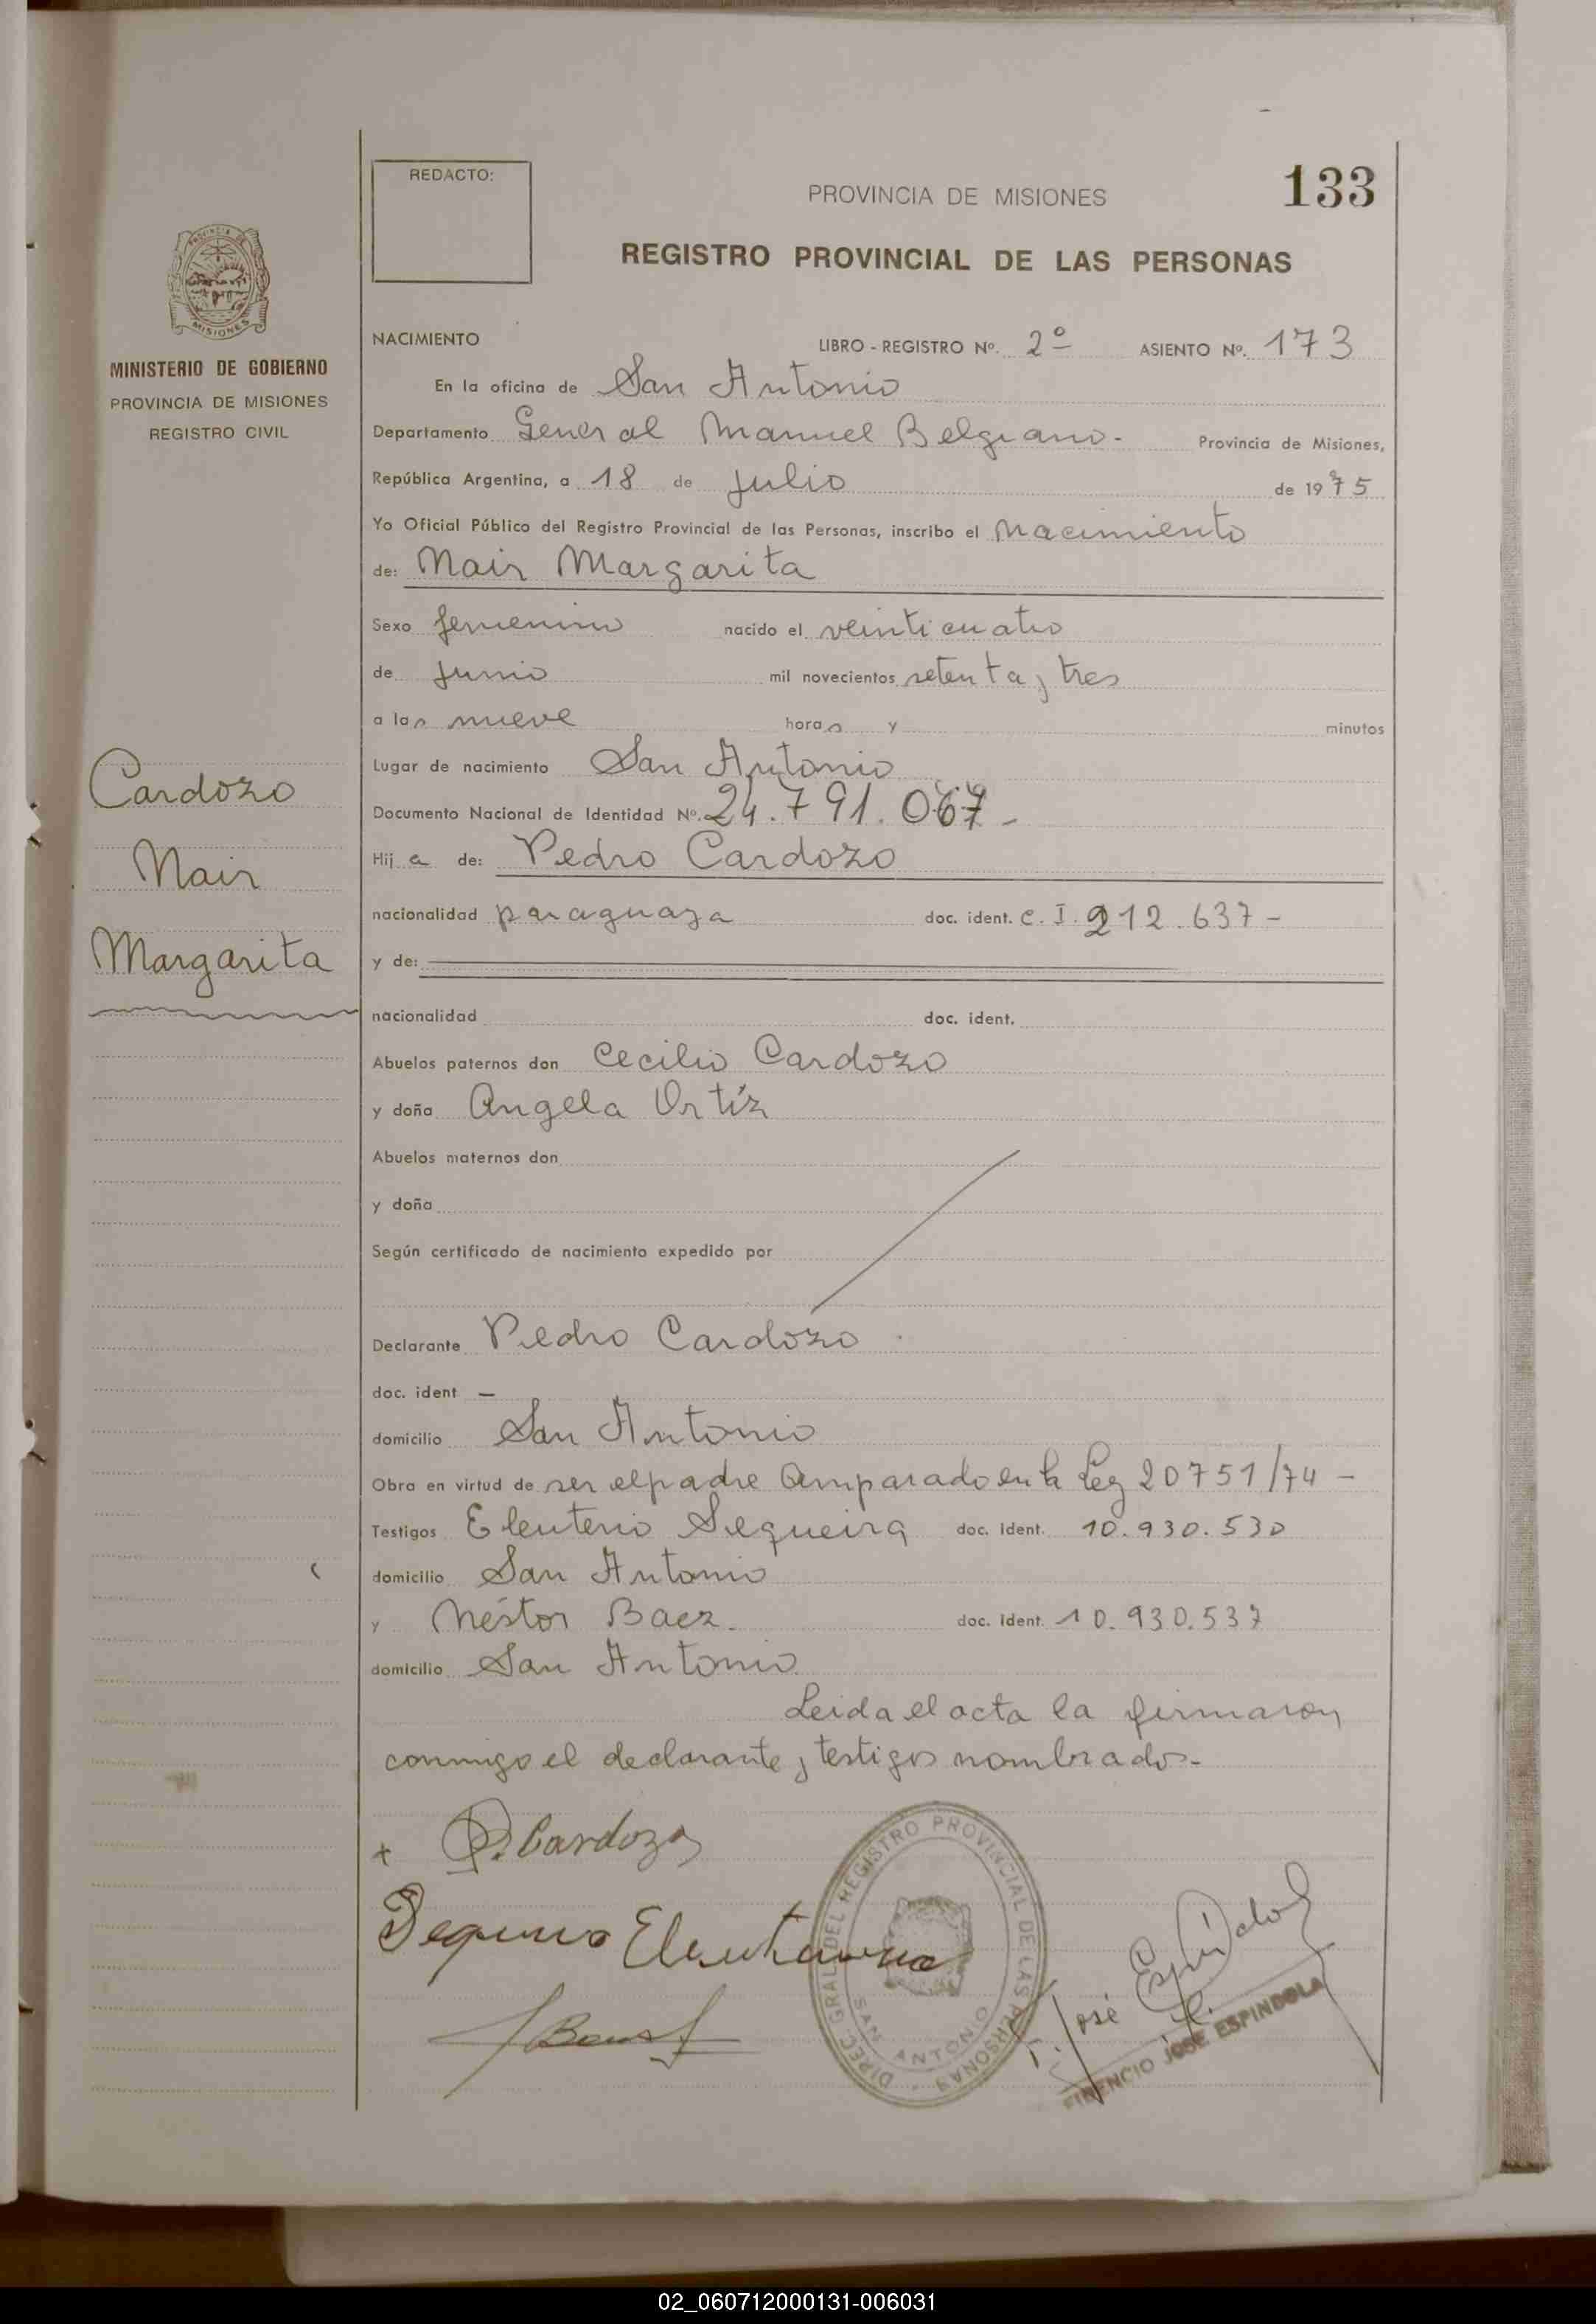 REDACTO:
PROVINCIA DE MISIONES
133
REGISTRO PROVINCIAL DE LAS PERSONAS
MISIONES
MINISTERIO DE GOBIERNO
PROVINCIA DE MISIONES
REGISTRO CIVIL
NACIMIENTO LIBRO - REGISTRO Nº. 2º ASIENTO Nº. 173
En la oficina de San Antonio
Departamento General Manuel Belgrano. Provincia de Misiones,
República Argentina, a 18 de Julio de 1975
Yo Oficial Público del Registro Provincial de las Personas, inscribo el Nacimiento
de: Nair Margarita
Sexo femenino nacido el veinticuatro
de Junio mil novecientos setenta y tres
a las nueve horas y minutos
Lugar de nacimiento San Antonio
Documento Nacional de Identidad Nº. 24.791.067-
Hija de: Pedro Cardozo
nacionalidad paraguaya doc. ident. C.I. 212.637-
y de:
nacionalidad doc. ident.
Abuelos paternos don Cecilio Cardozo
y doña Angela Ortíz
Abuelos maternos don
y doña
Según certificado de nacimiento expedido por
Declarante Pedro Cardozo
doc. ident —
domicilio San Antonio
Obra en virtud de ser el padre Amparado en la Ley 20751/74 -
Testigos Eleuterio Sequeira doc. ident. 10.930.530
domicilio San Antonio
y Néstor Baez. doc. ident. 10.930.537
domicilio San Antonio
Leida el acta la firmaron
conmigo el declarante y testigos nombrados.
Cardozo
Nair
Margarita
+ P. Cardozo
DIREC. GRAL. DEL REGISTRO PROVINCIAL DE LAS PERSONAS
SAN ANTONIO
F. José Espíndola
JOSE ESPINDOLA
02_060712000131-006031